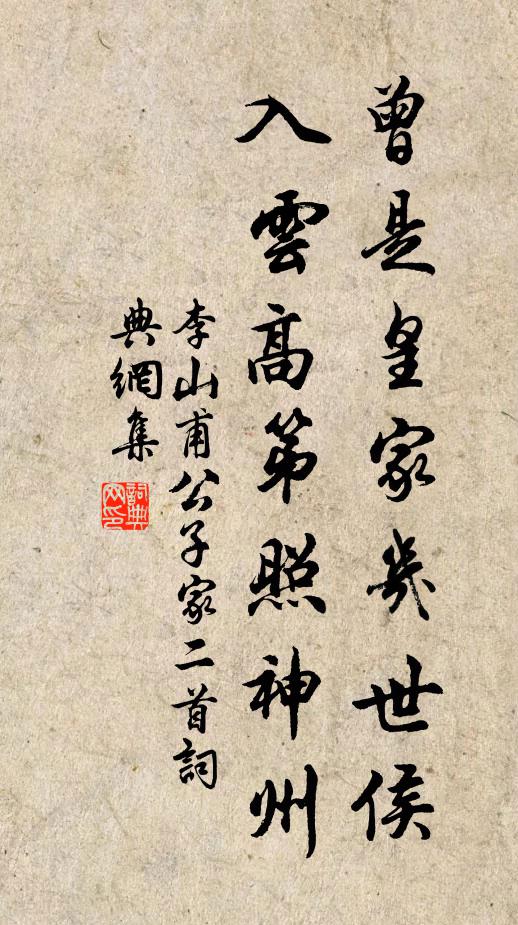 曾是皇家幾世侯
入雲高第照神州
李山甫公子家二首詞
典網集
詞典網印